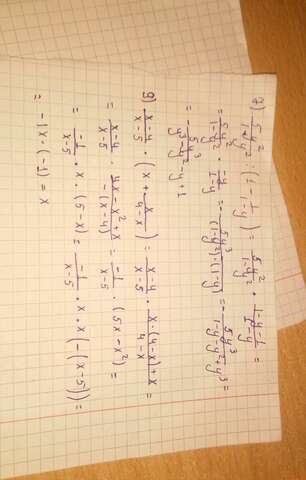 7) 5y²/(1-y²) · (1 - 1/(1-y)) = 5y²/(1-y²) · (1-y-1)/(1-y) =
= 5y²/(1-y²) · (-y)/(1-y) = - 5y³/((1-y²)·(1-y)) = - 5y³/(1-y-y²+y³) =
= - 5y³/(y³-y²-y+1)
9) (x-4)/(x-5) · (x + x/(4-x)) = (x-4)/(x-5) · (x·(4-x)+x)/(4-x) =
= (x-4)/(x-5) · (4x-x²+x)/(-(x-4)) = (-1)/(x-5) · (5x-x²) =
= (-1)/(x-5) · x · (5-x) = (-1)/(x-5) · x · x(-(x-5)) =
= -1x · (-1) = x